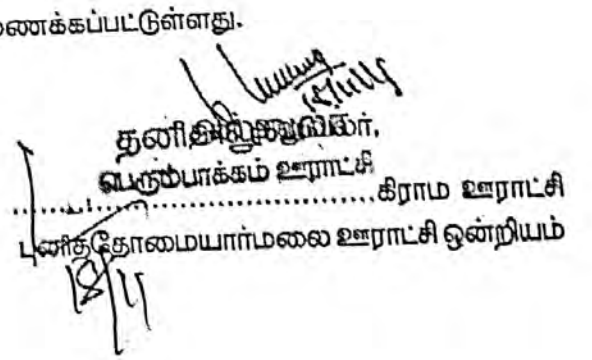 ணைக்கப்பட்டுள்ளது.
தனி அலுவலர்,
பெரும்பாக்கம் ஊராட்சி
....................கிராம ஊராட்சி
புனிததோமையார்மலை ஊராட்சி ஒன்றியம்
18/11